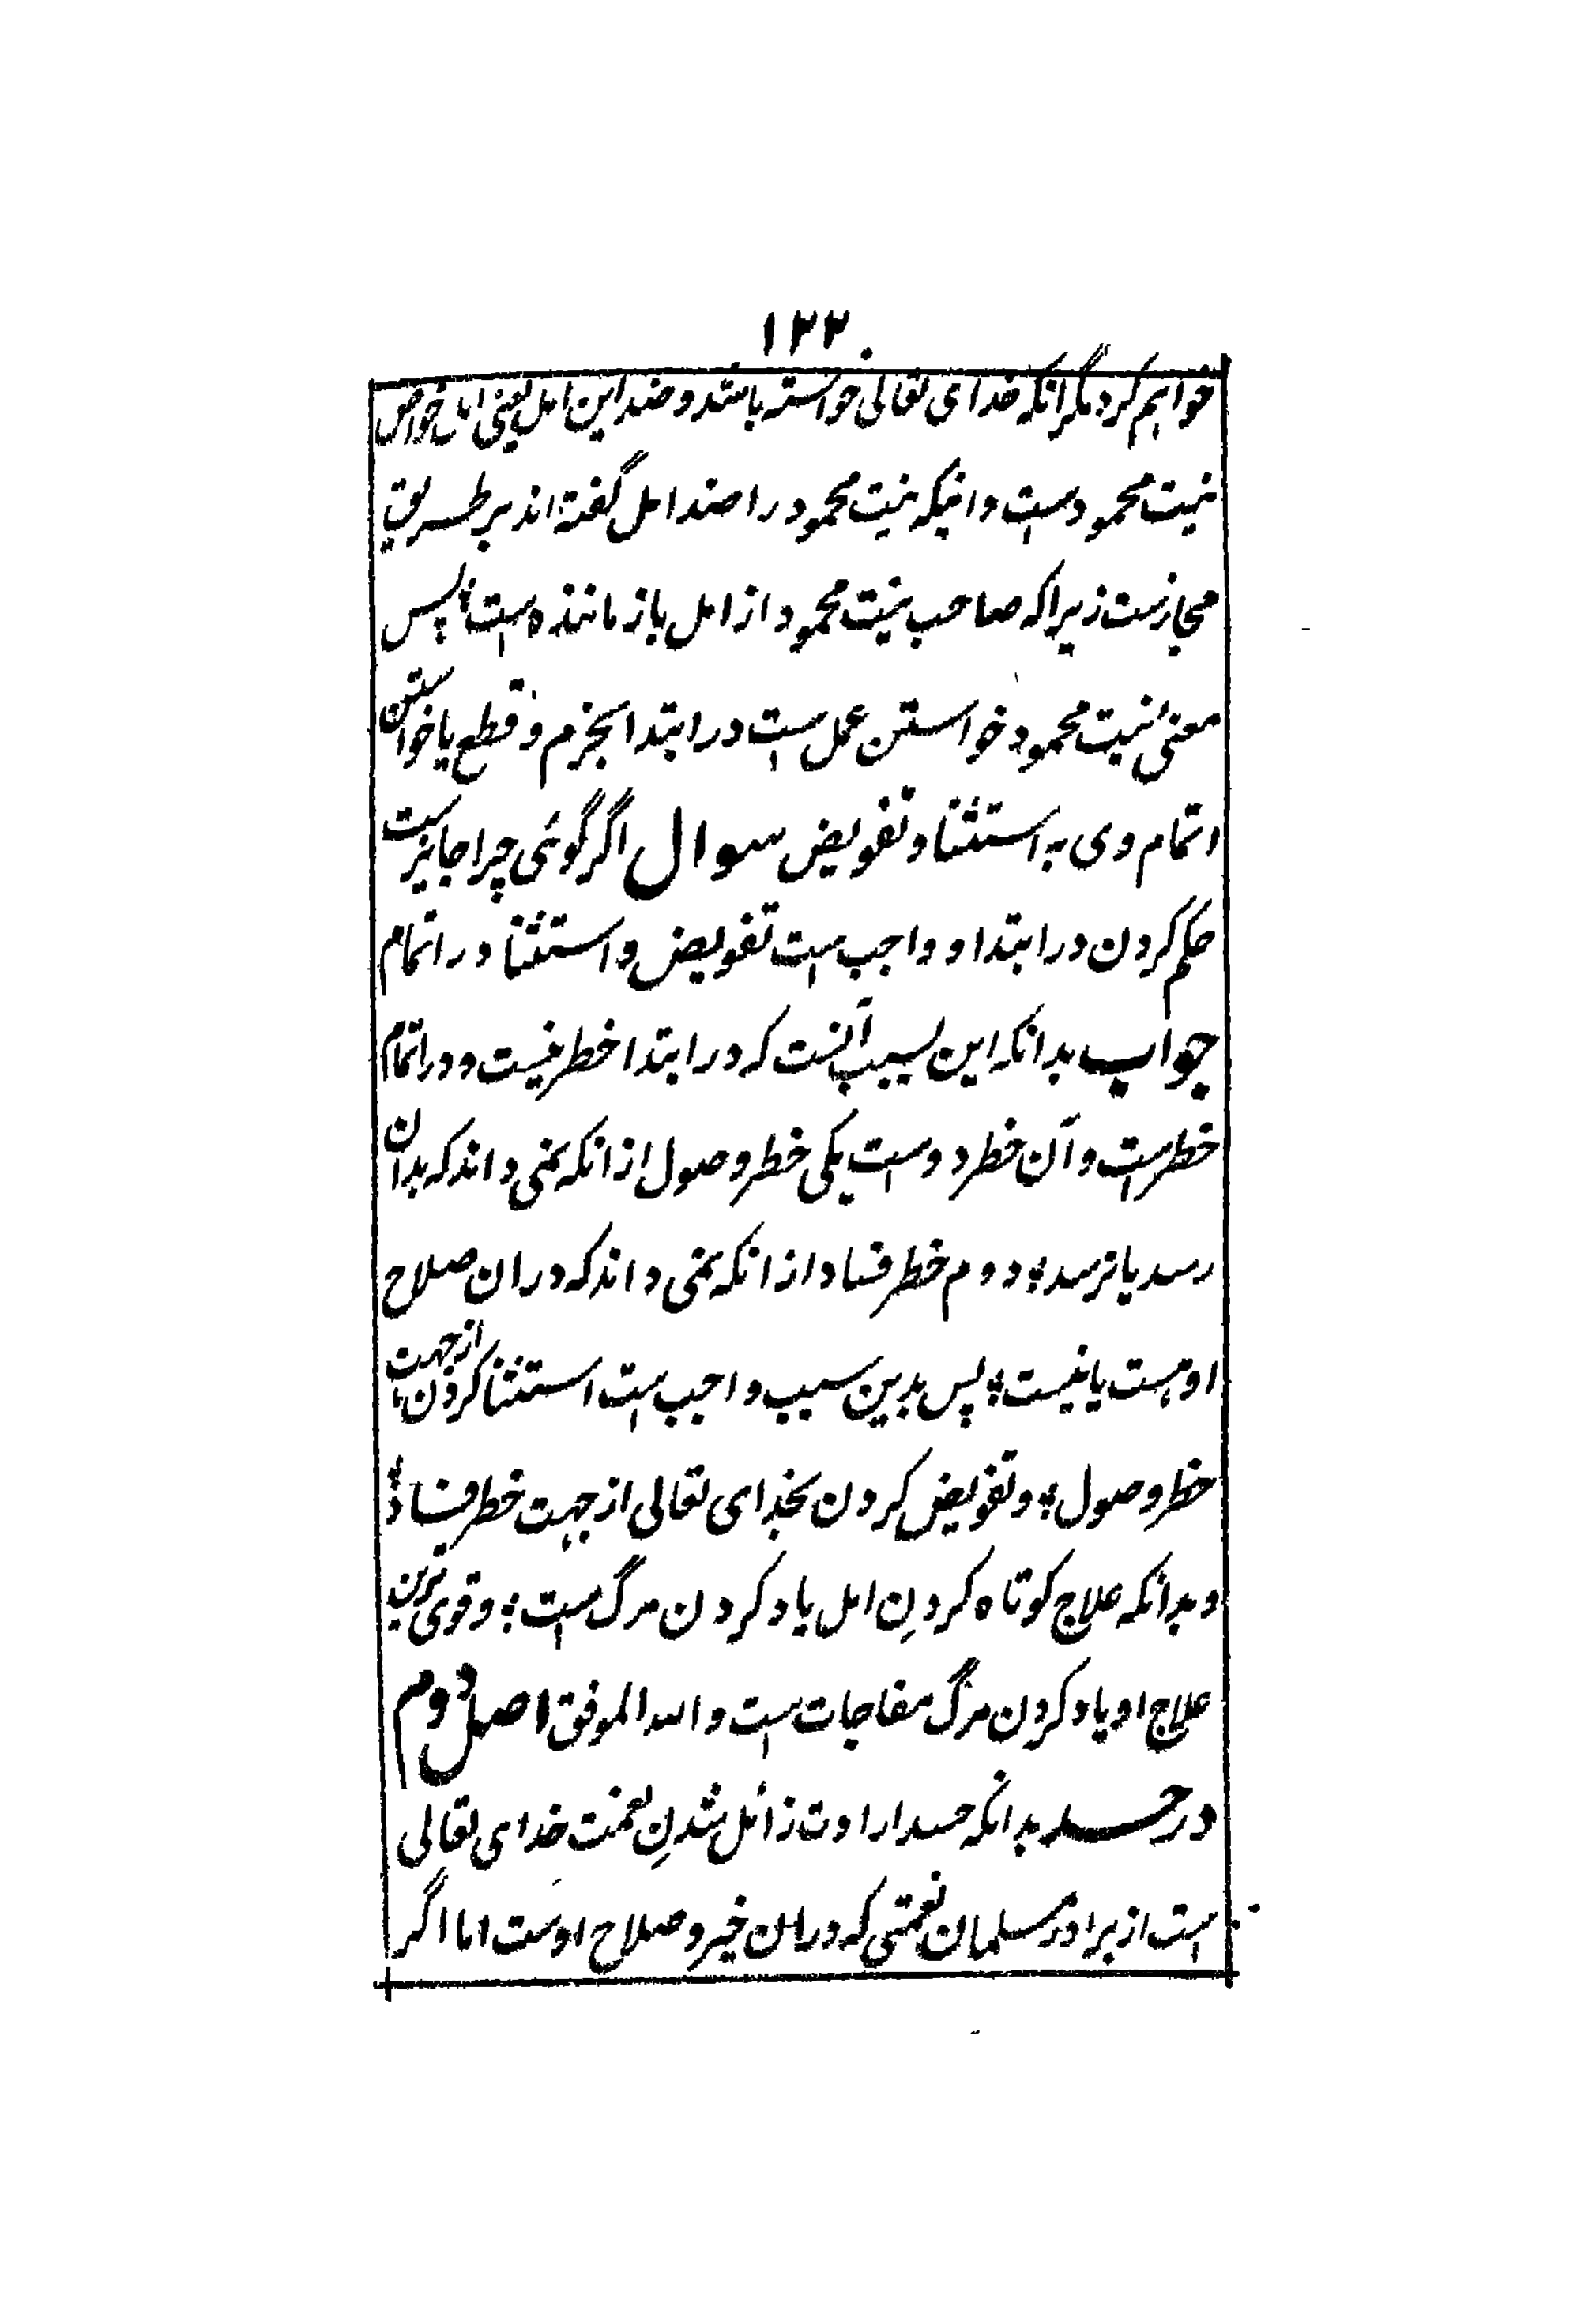 ۱۲۲
خواهیم کرد مگر انکه خدای تعالی خواسته باشد و ضد این امل یعنی امل خواص
نیت محمودست و اینکه نیت محمود را ضد امل گفته اند بر طریق
مجازست زیرا که صاحب نیت محمود از امل باز ماننده است ؛ پس
معنیٔ نیت محمود خواستن عمل است در ابتدا بجزم و قطع یا خواستن
اتمام وی به استثنا و تفویض سوال اگر گوئی چرا جایزست
حکم کردن در ابتدا و واجب است تفویض و استثنا در اتمام
جواب بدانکه این بسبب آنست که در ابتدا خطر نیست و در اتمام
خطرست و آن خطر دوست یکی خطر وصول از انکه نمی داند که بدان
رسد یا نرسد ؛ دوم خطر فساد از انکه نمی داند که دران صلاح
او هست یا نیست ؛ پس بدین سبب واجب است استثنا کردن از جهت
خطر وصول ؛ و تفویض کردن بخدای تعالی از جهت خطر فساد ؛
و بدانکه علاج کوتاه کردنِ امل یاد کردن مرگ است ؛ و قوی ترین
علاج او یاد کردن مرگ مفاجات است و الله الموفق اصل دوم
در حسد بدانکه حسد ارادت زائل شدنِ نعمت خدای تعالی
است از برادر مسلمان نعمتی که دران خیر و صلاح اوست اما اگر